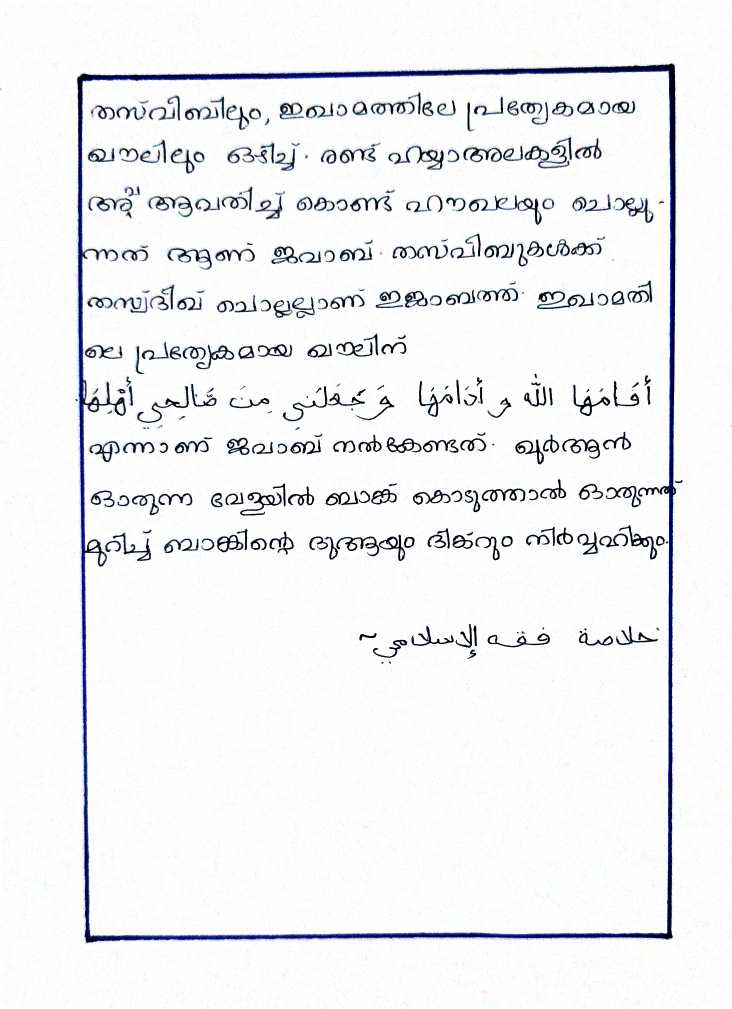 തസ്‌വീബിലും, ഇഖാമത്തിലേ പ്രത്യേകമായ
ഖൗലിലും ഒഴിച്ച്. രണ്ട് ഹയ്യാഅലകളിൽ
അത് ആവർതിച്ച് കൊണ്ട് ഹൗഖലയും ചൊല്ലു-
ന്നത് ആണ് ജവാബ്. തസ്‌വീബുകൾക്ക്
തസ്വ്ദീഖ് ചൊല്ലലാണ് ഇജാബത്ത്. ഇഖാമതി
ലെ പ്രത്യേകമായ ഖൗലിന്
أَقَامَهَا اللّٰه و أَدَامَهَا وَ جَعَلَنِي مِنْ صَالِحِي أَهْلِهَا
എന്നാണ് ജവാബ് നൽകേണ്ടത്. ഖുർആൻ
ഓതുന്ന വേളയിൽ ബാങ്ക് കൊടുത്താൽ ഓതുന്നത്
മുറിച്ച് ബാങ്കിന്റെ ദുആയും ദിക്റും നിർവ്വഹിക്കും.
خلاصة فقه الإسلامي ~